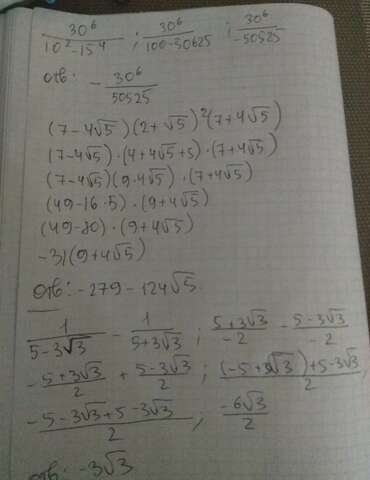 30⁶/(10²-15⁴) ; 30⁶/(100-50625) ; 30⁶/-50525
отв: - 30⁶/50525
(7-4√5)(2+√5)²(7+4√5)
(7-4√5)·(4+4√5+5)·(7+4√5)
(7-4√5)(9·4√5)·(7+4√5)
(49-16·5)·(9+4√5)
(49-80)·(9+4√5)
-31(9+4√5)
отв: -279-124√5.
1/(5-3√3) - 1/(5+3√3) ; (5+3√3)/-2 - (5-3√3)/-2
-(5+3√3)/2 + (5-3√3)/2 ; ((-5+3√3)+5-3√3)/2 ;
(-5-3√3+5-3√3)/2 ; -6√3/2
отв: -3√3